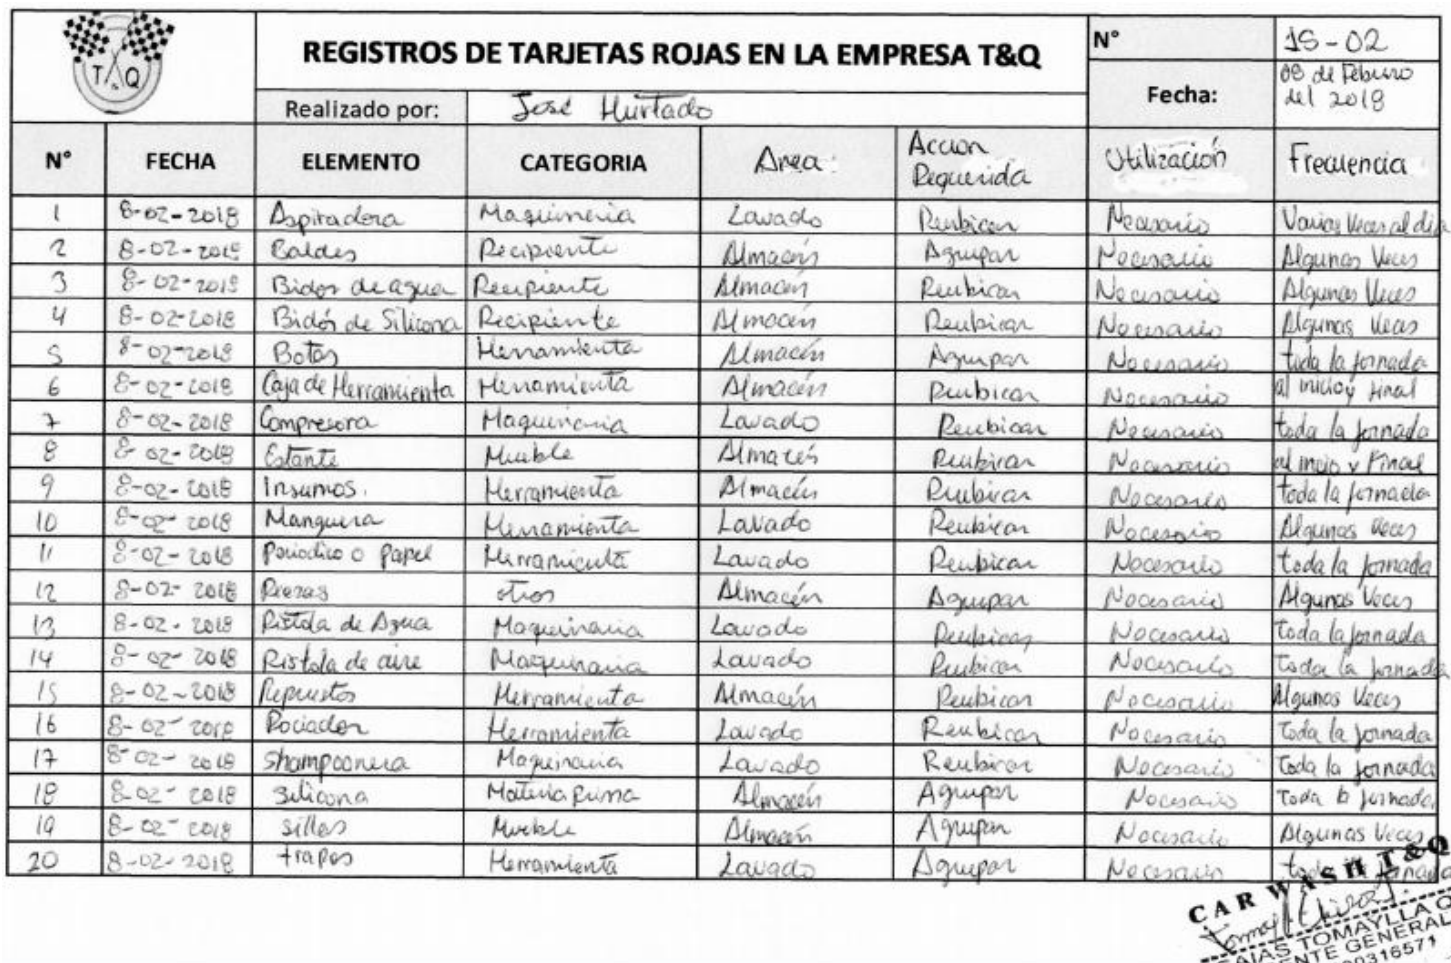 T&Q
REGISTROS DE TARJETAS ROJAS EN LA EMPRESA T&Q
N° 1S-02
Realizado por: José Hurtado
Fecha: 08 de Febrero del 2018
N° FECHA ELEMENTO CATEGORIA Area: Accion Requerida Utilización Frecuencia
1 8-02-2018 Aspiradora Maquineria Lavado Reubicar Necesario Varias Veces al dia
2 8-02-2018 Baldes Recipiente Almacén Agrupar Necesario Algunas Veces
3 8-02-2018 Bidón de agua Recipiente Almacén Reubicar Necesario Algunas Veces
4 8-02-2018 Bidón de Silicona Recipiente Almacén Reubicar Necesario Algunas Veces
5 8-02-2018 Botas Herramienta Almacén Agrupar Necesario toda la jornada
6 8-02-2018 Caja de Herramienta Herramienta Almacén Reubicar Necesario al inicio y Final
7 8-02-2018 Compresora Maquinaria Lavado Reubicar Necesario toda la jornada
8 8-02-2018 Estante Mueble Almacén Reubicar Necesario al inicio y Final
9 8-02-2018 Insumos. Herramienta Almacén Reubicar Necesario toda la jornada
10 8-02-2018 Manguera Herramienta Lavado Reubicar Necesario Algunas Veces
11 8-02-2018 Periodico o Papel Herramienta Lavado Reubicar Necesario toda la jornada
12 8-02-2018 Piezas otros Almacén Agrupar Necesario Algunas Veces
13 8-02-2018 Pistola de Agua Maquinaria Lavado Reubicar Necesario Toda la jornada
14 8-02-2018 Pistola de aire Maquinaria Lavado Reubicar Necesario Toda la jornada
15 8-02-2018 Repuestos Herramienta Almacén Reubicar Necesario Algunas Veces
16 8-02-2018 Rociador Herramienta Lavado Reubicar Necesario Toda la jornada
17 8-02-2018 Shampoonera Maquinaria Lavado Reubicar Necesario Toda la jornada
18 8-02-2018 Silicona Materia Prima Almacén Agrupar Necesario Toda la jornada
19 8-02-2018 sillas Mueble Almacén Agrupar Necesario Algunas Veces
20 8-02-2018 trapos Herramienta Lavado Agrupar Necesario toda la jornada
CAR WASH T&Q
TOMAYLLA Q
GENERAL